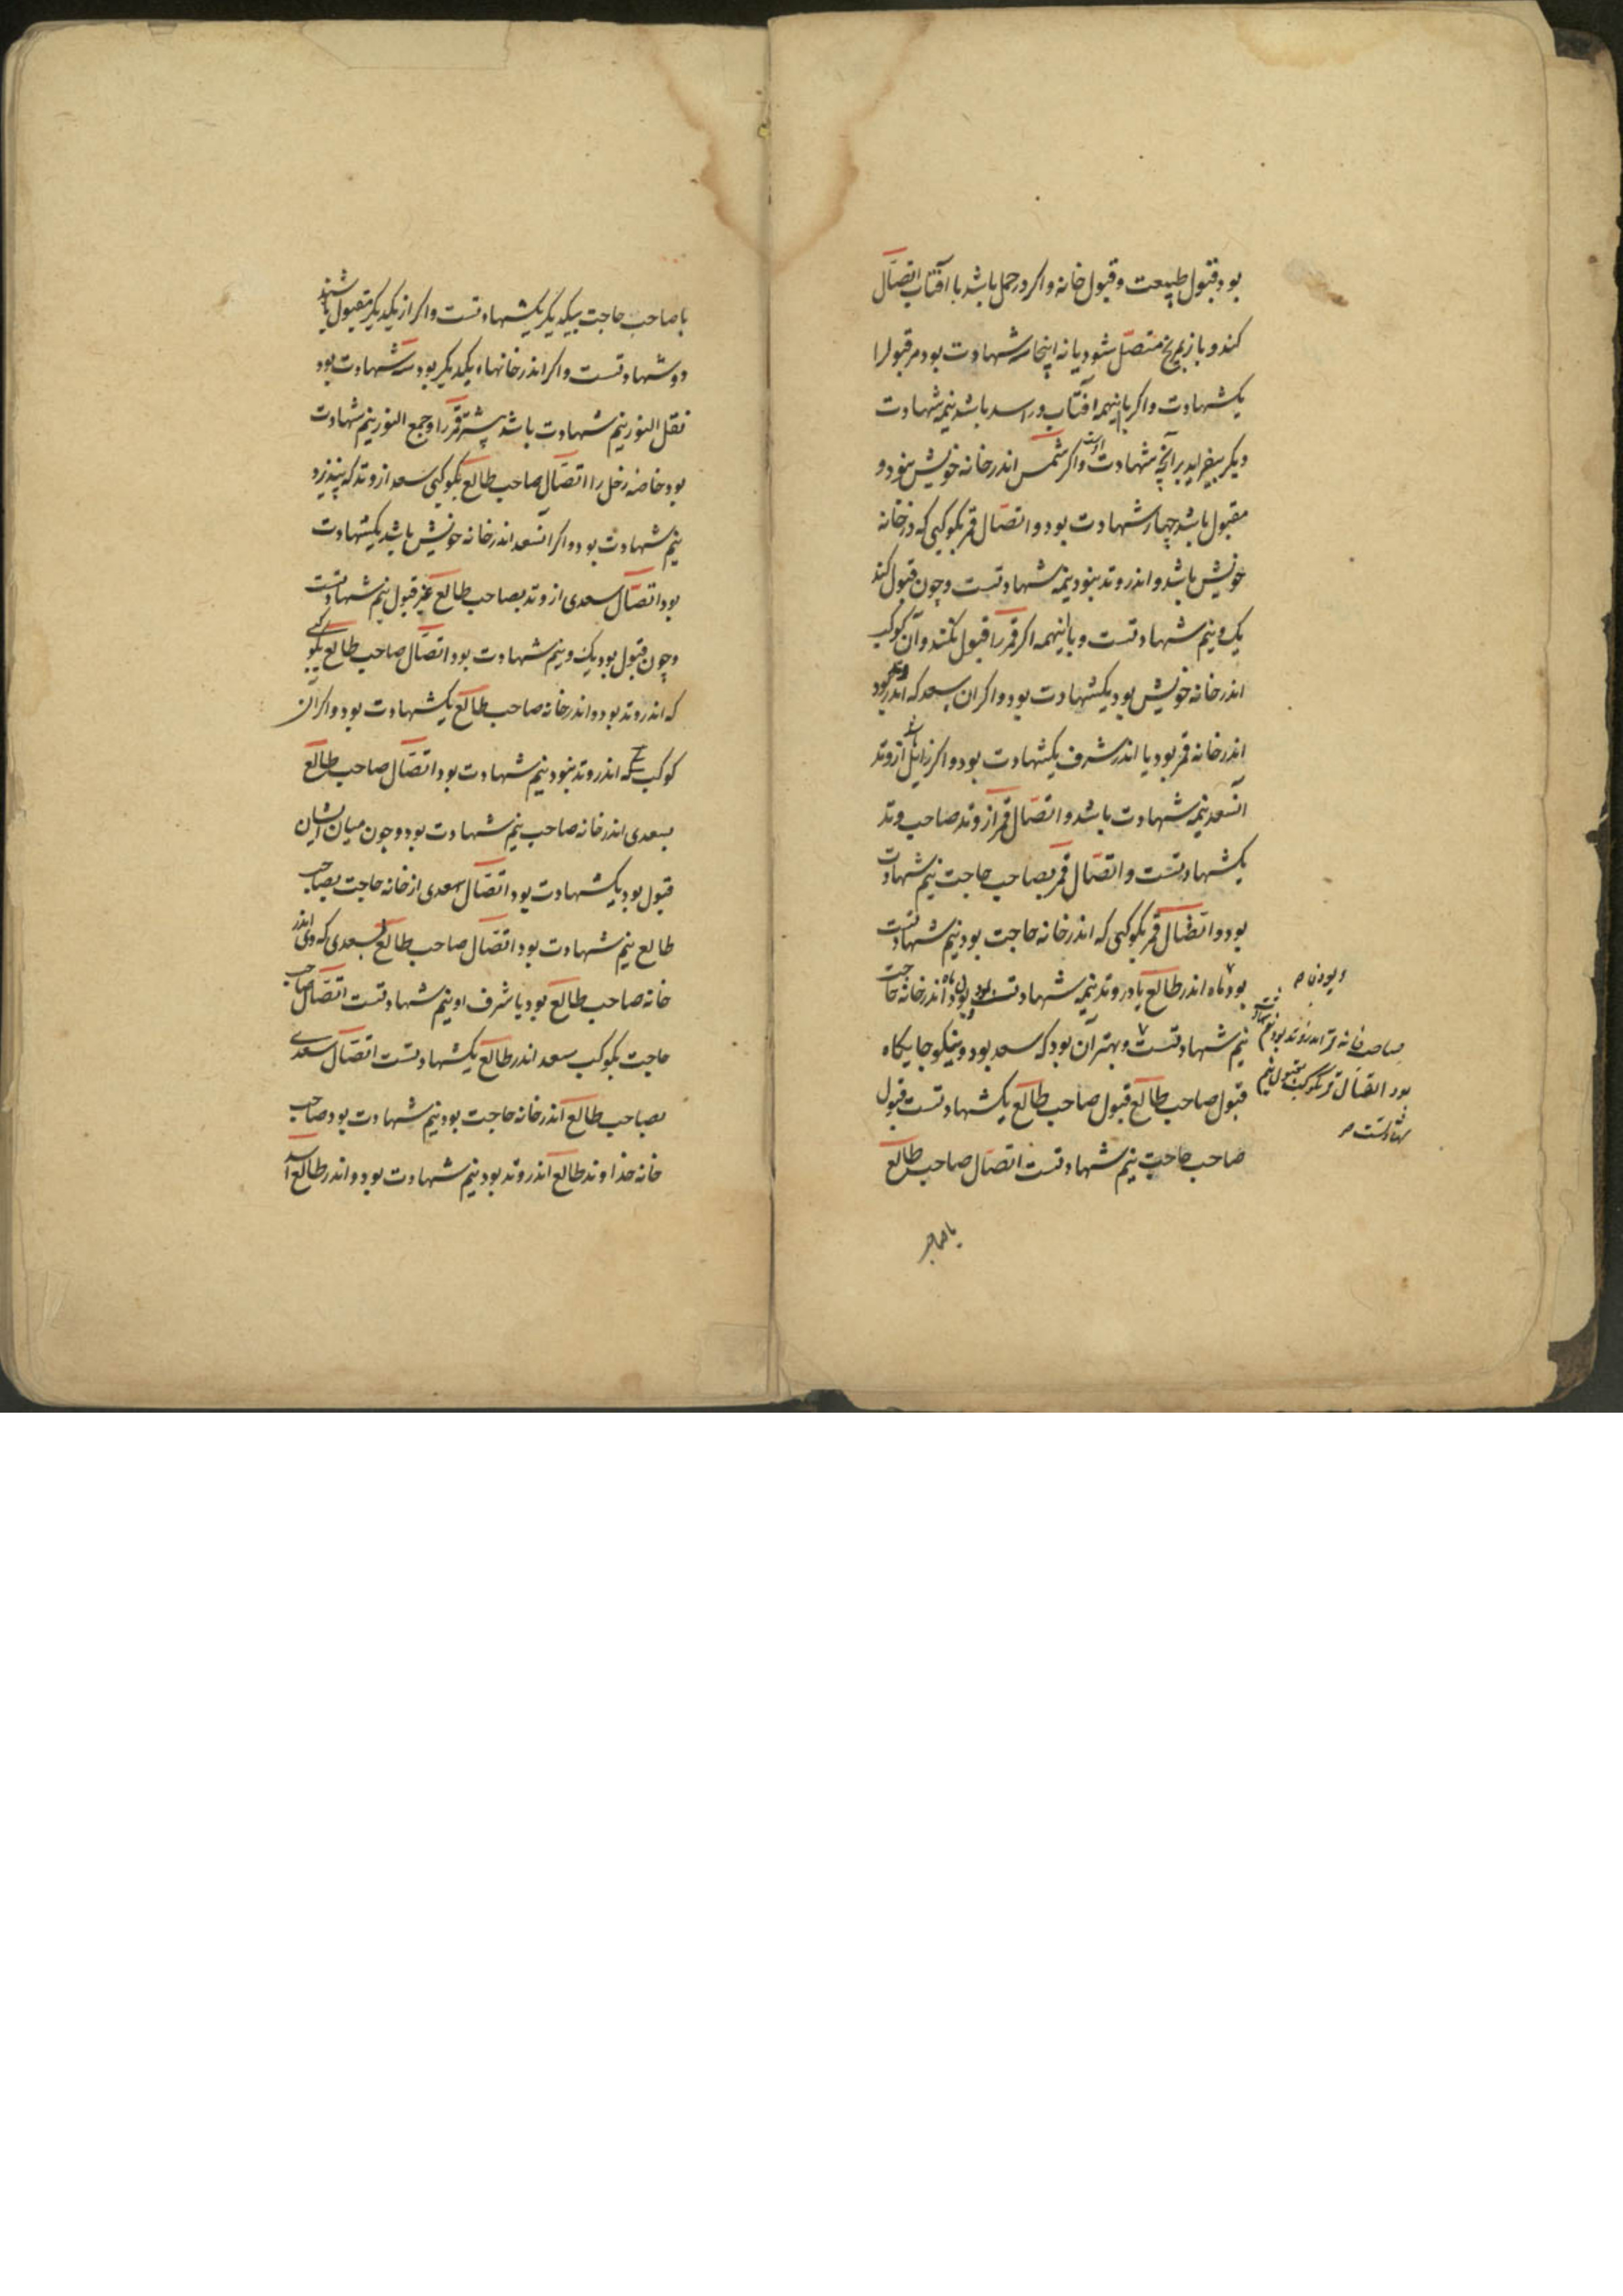 بود قبول طبیعت و قبول خانه و اکر در حمل باشد با آفتاب اتصال
کند و باز بمریخ متصل شود یا نه اینجا سه شهادت بود مر قبول را
یکشهادت و اکر بااینهمه آفتاب در اسد باشد نیمه شهادت
دیکر بیفزاید بر آنچه شهادت اوست و اکر شمس اندر خانه خویش بنود و
مقبول باشد چهار شهادت بود و اتصال قمر بکوکبی که در خانه
خویش باشد و اندر وتد بنود نیمه شهادتست و چون قبول کند
یک و نیم شهادتست و بااینهمه اکر قمر را قبول نکند و آن کوکب
اندر خانه خویش بود یکشهادت بود و اکر ان سعد که اندر وتد بود
اندر خانه قمر بود یا اندر شرف یکشهادت بود و اکر زایل باشد از وتد
آنسعد نیمه شهادت باشد و اتصال قمر از وتد صاحب وتد
یکشهادتست و اتصال قمر بصاحب حاجت نیم شهادت
بود و اتصال قمر بکوکبی که اندر خانه حاجت بود نیم شهادتست
بود ماه اندر طالع یا در وتد نیمه شهادتست بودن ماه اندر خانه حاجت
نیم شهادتست و بهتر آن بود که سعد بود و نیکو جایکاه
قبول صاحب طالع قبول صاحب طالع یکشهادتست قبول
صاحب حاجت نیم شهادتست اتصال صاحب طالع
و بودن
صاحب خانه قمر اندر وتد بود نیم شهادت
بود اتصال قمر بکوکب مقبول نیم
شهادتست
با صاحب
با صاحب حاجت بیکدیکر یکشهادتست و اکر از یکدیکر مقبول باشند
دو شهادتست و اکر اندر خانهاء یکدیکر بود سه شهادت بود
نقل النور نیم شهادت باشد بیشتر قمر را و جمع النور نیم شهادت
بود خاصه زحل را اتصال صاحب طالع بکوکبی سعد از وتد که بپذیرد
نیم شهادت بود و اکر آنسعد اندر خانه خویش باشد یکشهادت
بود اتصال سعدی از وتد بصاحب طالع غیر قبول نیم شهادتست
و چون قبول بود یک و نیم شهادت بود اتصال صاحب طالع بکوکبی
که اندر وتد بود و اندر خانه صاحب طالع یکشهادت بود و اکر آن
کوکب که اندر وتد بنود نیم شهادت بود اتصال صاحب طالع
بسعدی اندر خانه صاحب نیم شهادت بود و چون میان ایشان
قبول بود یکشهادت بود اتصال سعدی از خانه حاجت بصاحب
طالع نیم شهادت بود اتصال صاحب طالع بسعدی که وی اندر
خانه صاحب طالع بود یا شرف او نیم شهادتست اتصال صاحب
حاجت بکوکب سعد اندر طالع یکشهادتست اتصال سعدی
بصاحب طالع اندر خانه حاجت بود نیم شهادت بود صاحب
خانه خداوند طالع اندر وتد بود نیم شهادت بود و اندر طالع اسد